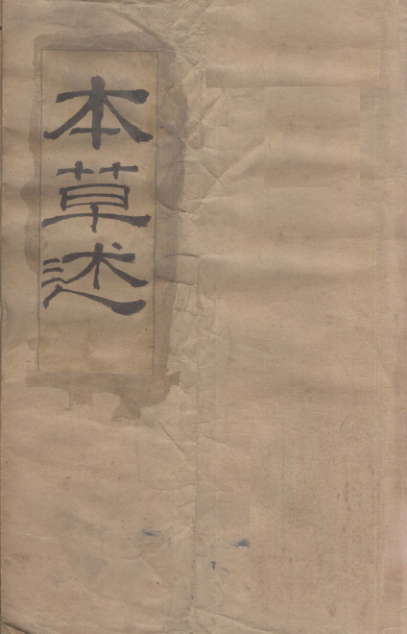 本草述